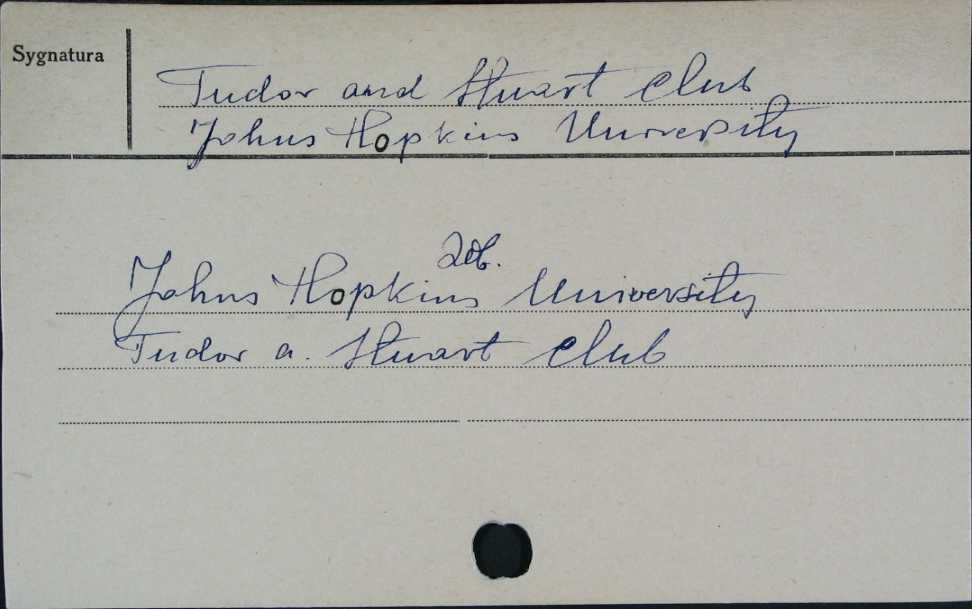 Sygnatura
Tudor and Stuart Club
Johns Hopkins University
Zob.
Johns Hopkins University
Tudor a. Stuart Club